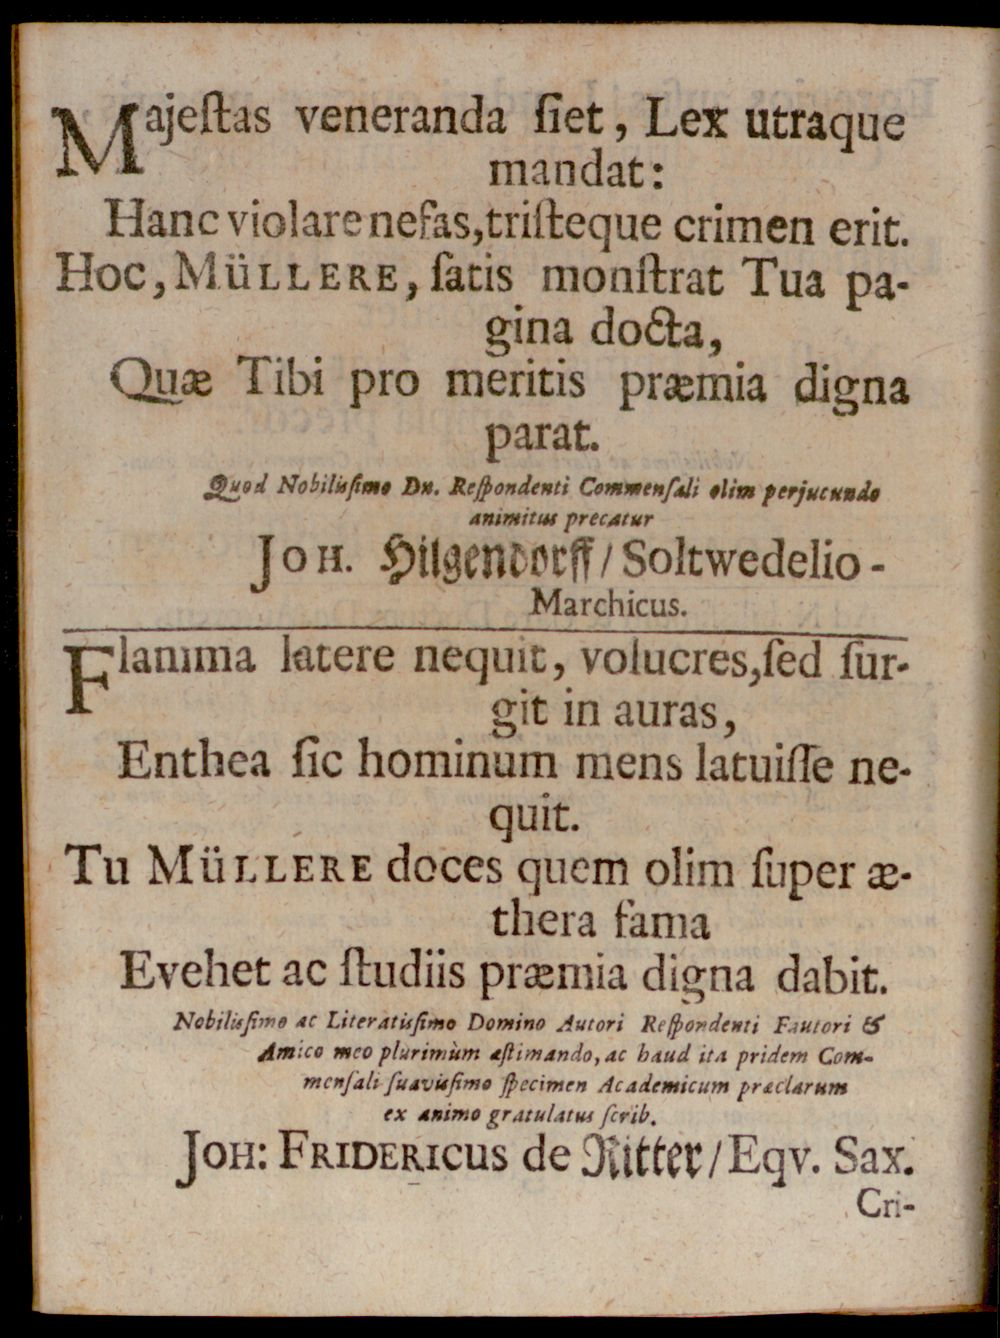 Majeſtas veneranda ſiet, Lex utraque
mandat:
Hanc violare nefas, triſteque crimen erit.
Hoc, MÜLLERE, ſatis monſtrat Tua pa-
gina docta,
Quæ Tibi pro meritis præmia digna
parat.
Quod Nobiliſſimo Dn. Reſpondenti Commenſali olim perjucundo
animitus precatur
JOH. Hilgendorff / Soltwedelio-
Marchicus.
Flamma latere nequit, volucres, ſed ſur-
git in auras,
Enthea ſic hominum mens latuiſſe ne-
quit.
Tu MÜLLERE doces quem olim ſuper æ-
thera fama
Evehet ac ſtudiis præmia digna dabit.
Nobiliſſimo ac Literatiſſimo Domino Autori Reſpondenti Fautori &
Amico meo plurimùm æſtimando, ac haud ita pridem Com-
menſali ſuaviſſimo ſpecimen Academicum præclarum
ex animo gratulatus ſcrib.
JOH: FRIDERICUS de Ritter / Eqv. Sax.
Cri-